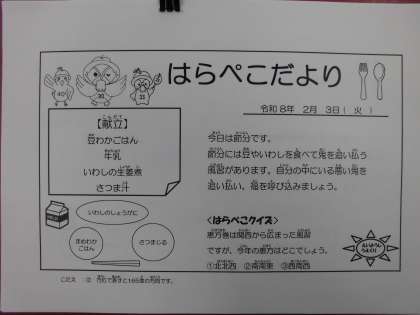 はらぺこだより
令和8年 2月 3日(火)
【献立】
豆わかごはん
牛乳
いわしの生姜煮
さつま汁
今日は節分です。
節分には豆やいわしを食べて鬼を追い払う
風習があります。自分の中にいる悪い鬼を
追い払い、福を呼び込みましょう。
いわしのしょうがに
まめわか
ごはん
さつまじる
<はらぺこクイズ>
恵方巻は関西から広まった風習
ですが、今年の恵方はどこでしょう。
①北北西 ②南南東 ③西南西
こたえ:②